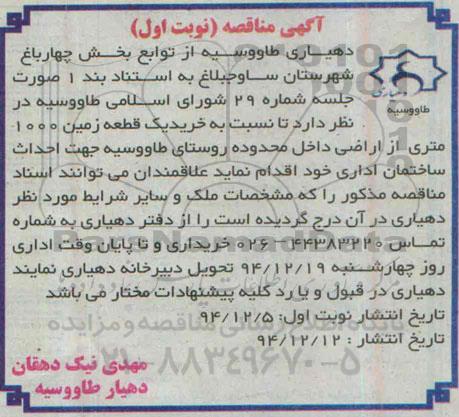 آگهی مناقصه (نوبت اول)
دهیاری طاووسیه از توابع بخش چهارباغ
شهرستان ساوجبلاغ به استناد بند ۱ صورت
جلسه شماره ۲۹ شورای اسلامی طاووسیه در
نظر دارد تا نسبت به خریدیک قطعه زمین ۱۰۰۰
متری از اراضی داخل محدوده روستای طاووسیه جهت احداث
ساختمان اداری خود اقدام نماید علاقمندان می توانند اسناد
مناقصه مذکور را که مشخصات ملک و سایر شرایط مورد نظر
دهیاری در آن درج گردیده است را از دفتر دهیاری به شماره
تماس ۴۴۳۸۳۲۲۰-۰۲۶ خریداری و تا پایان وقت اداری
روز چهارشنبه ۹۴/۱۲/۱۹ تحویل دبیرخانه دهیاری نمایند
دهیاری در قبول و یا رد کلیه پیشنهادات مختار می باشد
تاریخ انتشار نوبت اول: ۹۴/۱۲/۵
تاریخ انتشار : ۹۴/۱۲/۱۲
مهدی نیک دهقان
دهیار طاووسیه
طاووسیه
پایگاه اطلاع رسانی مناقصه و مزایده
۰۲۱-۸۸۳۴۹۶۷۰-۵